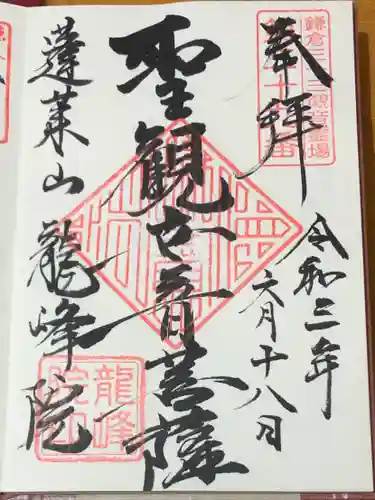 奉拝
令和三年
六月十八日
聖観世音菩薩
蓬莱山龍峰院
鎌倉三十三観音霊場
龍峰